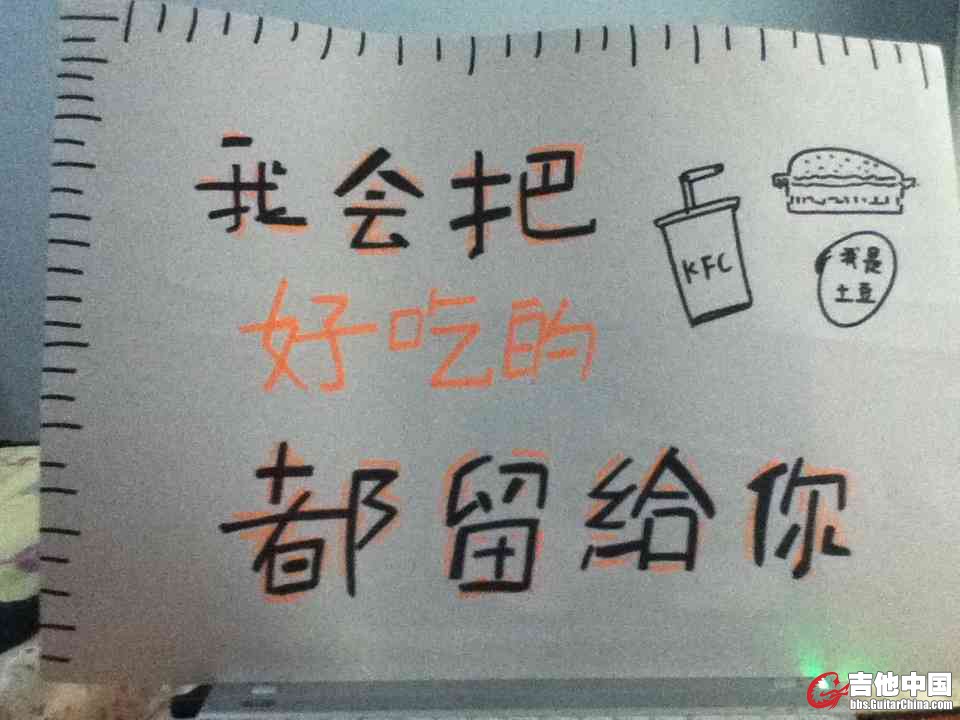 我会把
KFC
我是
土豆
好吃的
都留给你
吉他中国
bbs.GuitarChina.com